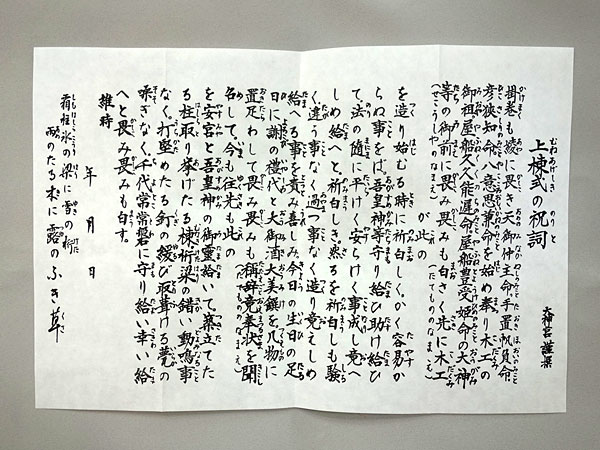 上棟式の祝詞
大神宮謹案
掛巻も綾に畏き天御仲主命手置帆負命
彦狭知命八意思兼命を始め奉り木工の
御祖屋船久久能遅命屋船豊受姫命の大神
等の御前に畏み畏みも白さく先に木工(せこうしゃのなまえ)
が此の(たてもののなまえ)
を造り始むる時に祈白しく。かく容易か
らぬ事をば吾皇神等守り給ひ助け給ひ
て法の随に平けく安らけく事成し竟へ
しめ給へと。祈白しき。然るを祈白しも験
く違う事なく過つ事なく造り竟えしめ
給へる事を貴み喜しみ今日の生日の足
日に謝の礼代と大御酒大美饌を几物に
置足わして畏み畏みも称辞竟奉状を聞
召して。今も往先も此の(たてもののなまえ)
を安宮と吾皇神の御霊給いて築立てた
る柱取り挙げたる棟桁梁の錯い動鳴事
なく。打堅めたる釘の緩び取葺ける甍の
噪ぎなく。千代常常磐に守り給い幸い給
へと畏み畏みも白す。
維時
年 月 日
霜柱氷の梁に雪の桁
雨のたる木に露のふき草